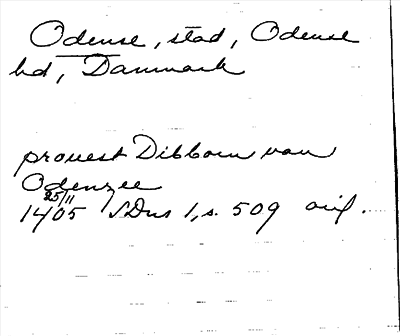 Odense, stad, Odense
hd, Danmark
provest Dibborn van
Odenzee
25/11
1405 SDns 1, s. 509 avif.